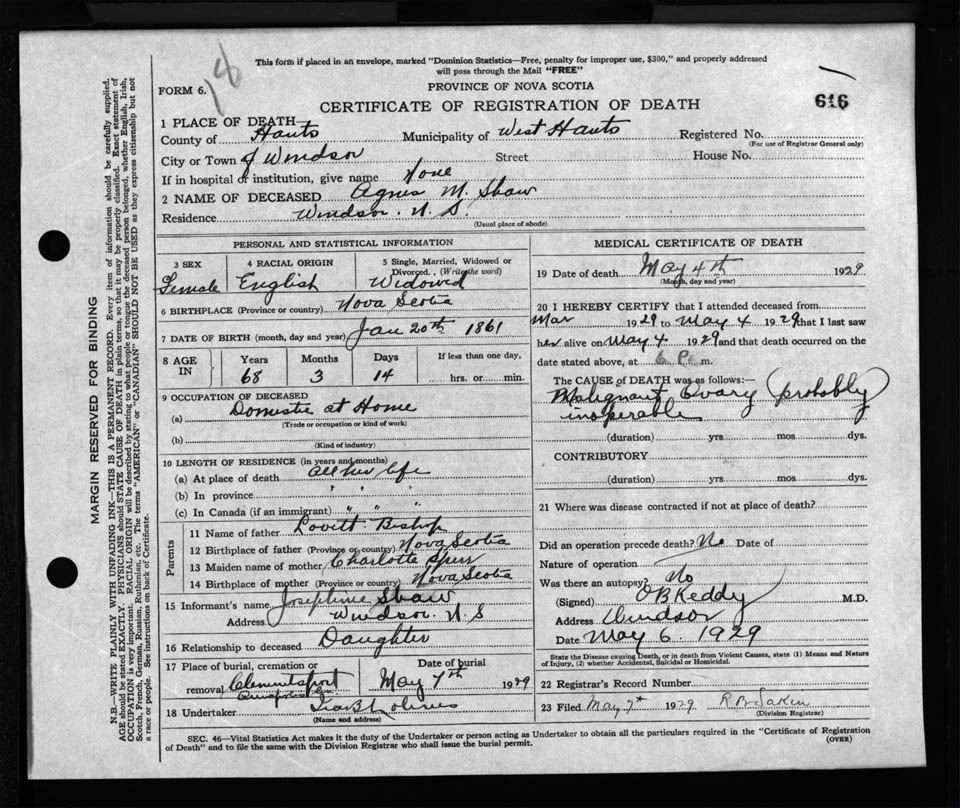 18
This form if placed in an envelope, marked "Dominion Statistics—Free, penalty for improper use, $300," and properly addressed
will pass through the Mail "FREE"
FORM 6.
PROVINCE OF NOVA SCOTIA
616
CERTIFICATE OF REGISTRATION OF DEATH
1 PLACE OF DEATH
County of Hants Municipality of West Hants Registered No.
(For use of Registrar General only)
City or Town of Windsor Street House No.
If in hospital or institution, give name None
2 NAME OF DECEASED Agnes M. Shaw
Residence Windsor. N. S.
(Usual place of abode)
PERSONAL AND STATISTICAL INFORMATION
3 SEX 4 RACIAL ORIGIN 5 Single, Married, Widowed or
Divorced. (Write the word)
Female English Widowed
6 BIRTHPLACE (Province or country) Nova Scotia
7 DATE OF BIRTH (month, day and year) Jan 20th 1861
8 AGE IN Years Months Days If less than one day,
68 3 14 hrs. or min.
9 OCCUPATION OF DECEASED
(a) Domestic at Home
(Trade or occupation or kind of work)
(b)
(Kind of industry)
10 LENGTH OF RESIDENCE (in years and months)
(a) At place of death all her life
(b) In province " " "
(c) In Canada (if an immigrant) " " "
Parents
11 Name of father Lovitt Bishop
12 Birthplace of father (Province or country) Nova Scotia
13 Maiden name of mother Charlotte Spurr
14 Birthplace of mother (Province or country) Nova Scotia
15 Informant's name Josephine Shaw
Address Windsor N. S
16 Relationship to deceased Daughter
17 Place of burial, cremation or Date of burial
removal Clementsport May 7th 1929
18 Undertaker
(Name and address)
MEDICAL CERTIFICATE OF DEATH
19 Date of death May 4th 1929
(Month, day and year)
20 I HEREBY CERTIFY that I attended deceased from
Mar 1929 to May 4 1929 that I last saw
her alive on May 4 1929 and that death occurred on the
date stated above, at 6 P. m.
The CAUSE of DEATH was as follows:—
Malignant Ovary (probably
inoperable
(duration) yrs. mos dys.
CONTRIBUTORY
(duration) yrs. mos. dys.
21 Where was disease contracted if not at place of death?
Did an operation precede death? No Date of
Nature of operation
Was there an autopsy? No
(Signed) O B Keddy M.D.
Address Windsor
Date May 6. 1929
State the Disease causing Death, or in death from Violent Causes, state (1) Means and Nature
of Injury, (2) whether Accidental, Suicidal or Homicidal.
22 Registrar's Record Number
23 Filed May 7th 1929
(Division Registrar)
SEC. 46—Vital Statistics Act makes it the duty of the Undertaker or person acting as Undertaker to obtain all the particulars required in the "Certificate of Registration
of Death" and to file the same with the Division Registrar who shall issue the burial permit. (OVER)
MARGIN RESERVED FOR BINDING
N.B—WRITE PLAINLY WITH UNFADING INK—THIS IS A PERMANENT RECORD. Every item of information should be carefully supplied.
AGE should be stated EXACTLY. PHYSICIANS should STATE CAUSE OF DEATH in plain terms, so that it may be properly classified. Exact statement of
OCCUPATION is very important. RACIAL ORIGIN will be described by stating to what people or tongue the deceased person belonged, whether English, Irish,
Scotch, French, German, Russian, Ruthenian, etc. The terms "AMERICAN" or "CANADIAN" SHOULD NOT BE USED as they express citizenship but not
a race or people. See instructions on back of Certificate.